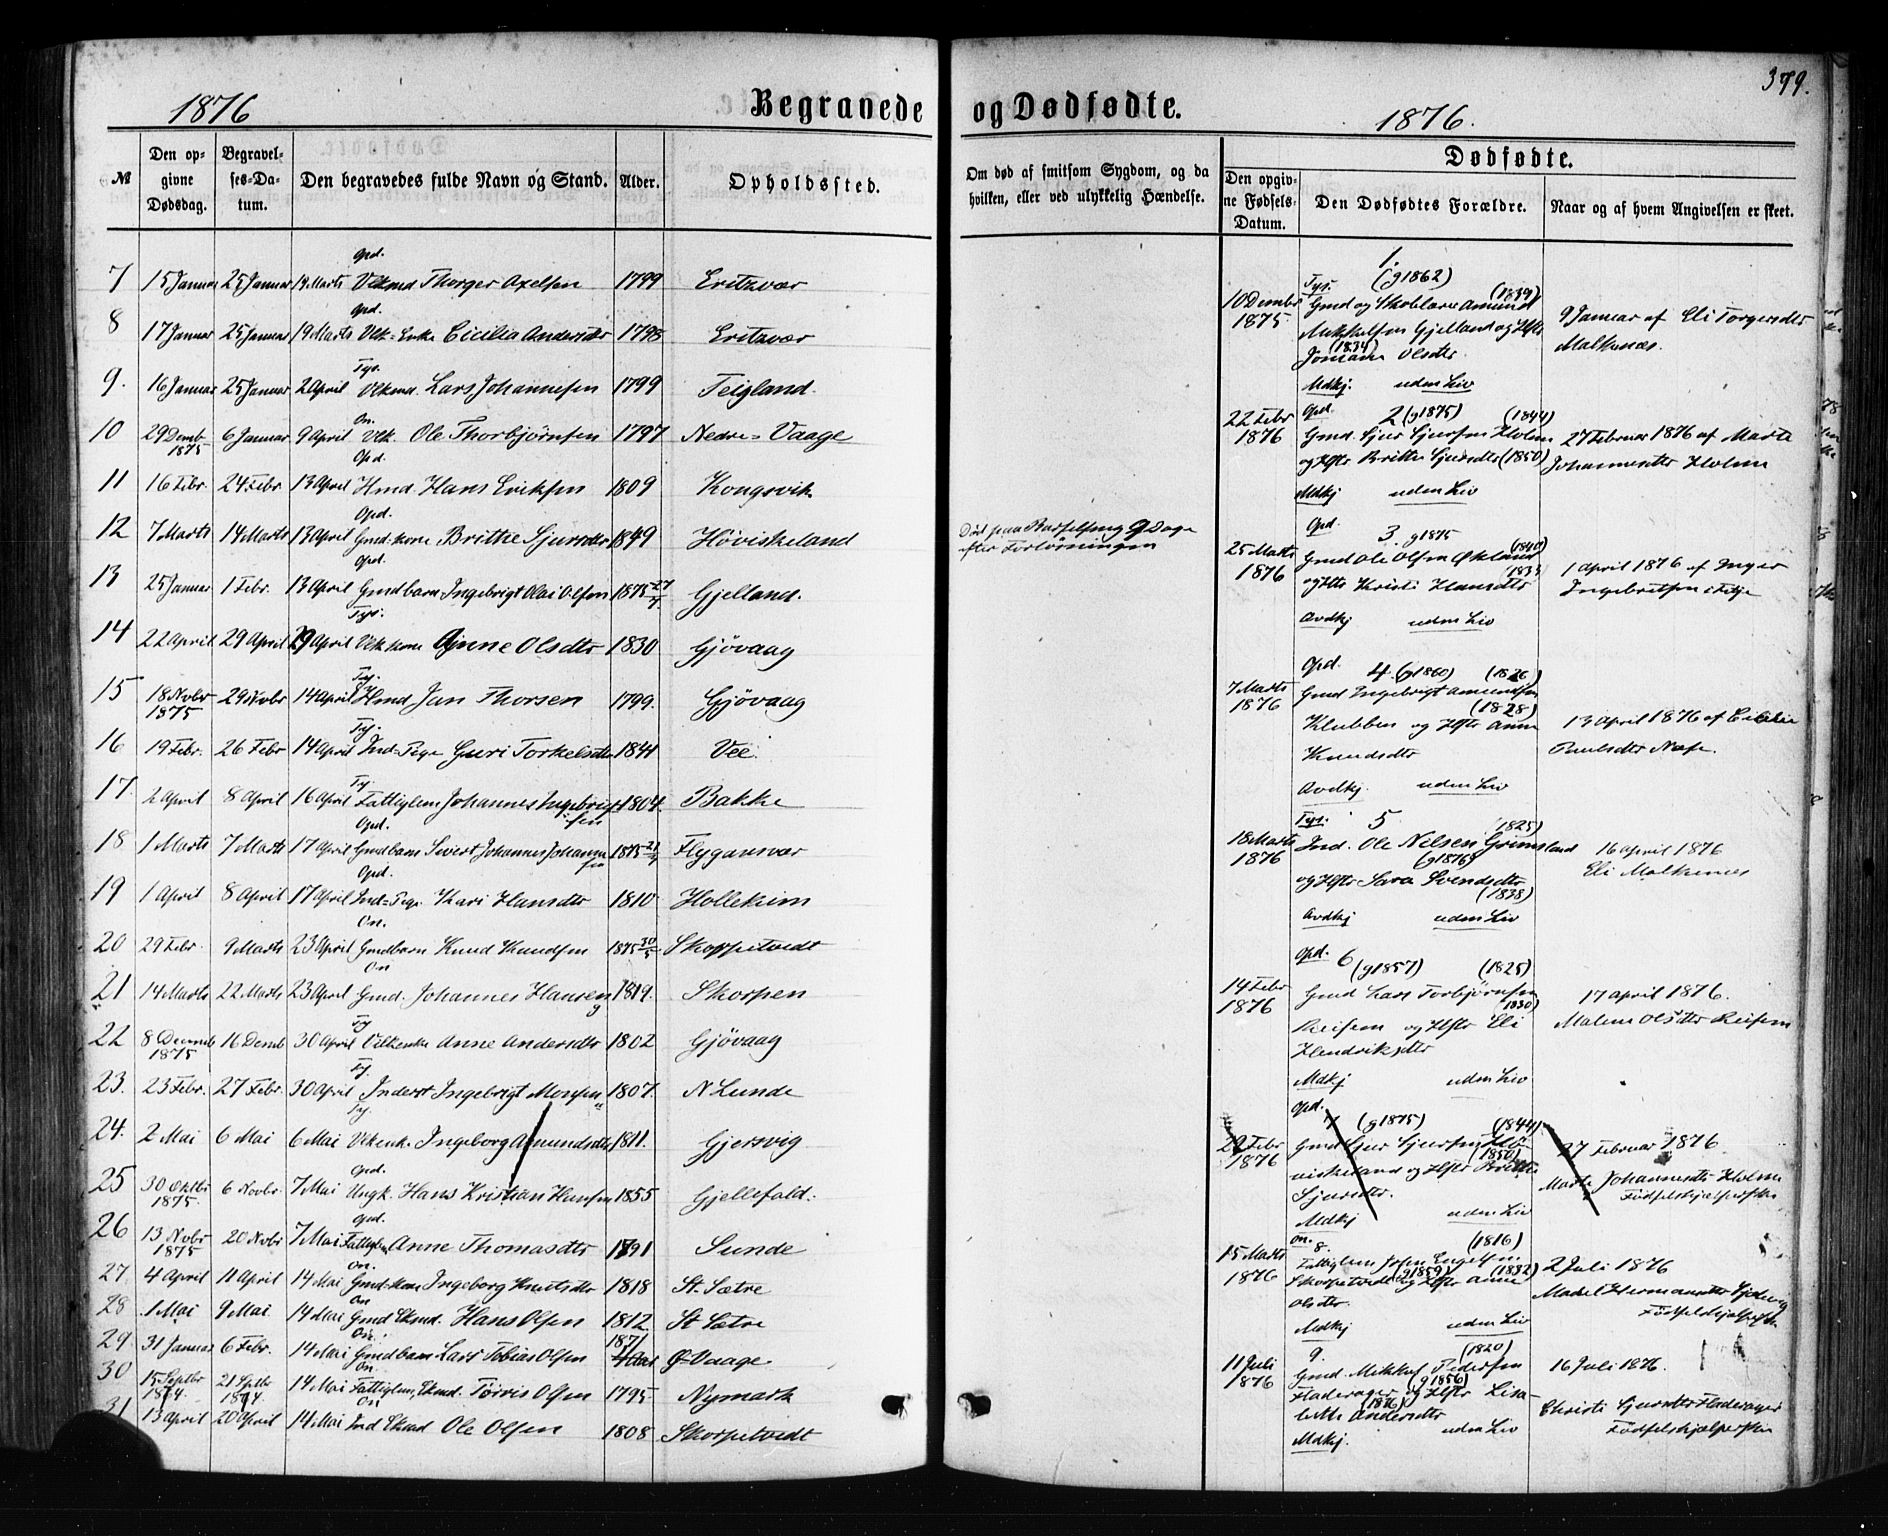 379.
1876
Begravede og Dødfødte.
1876.
№
Den opgivne Dødsdag.
Begravelses-Datum.
Den begravedes fulde Navn og Stand.
Alder.
Opholdssted.
Om død af smitsom Sygdom, og da hvilken, eller ved ulykkelig Hændelse.
Dødfødte.
Den opgivne Fødsels-Datum.
Den Dødfødtes Forældre.
Naar og af hvem Angivelsen er skeet.
Opd.
7 15 Januar 25 Januar 19 Marts Vlkmd Thorger Axelsen 1799 Eritzvær
Opd.
8 17 Januar 25 Januar 19 Marts Vlk. Enke Cicilia Andersdtr 1798 Eritzvær
Tys.
9. 16 Januar 25 Januar 2 April Vlkmd. Lars Johannesen 1799 Teigland.
On.
10 29 Decmb 1875 6 Januar 9 April Vlk. Ole Thorbjørnsen 1797 Nedre-Vaage
Opd.
11 16 Febr. 24 Febr 13 April Hmd. Hans Eriksen 1809 Kongsvik
Opd.
12 7 Marts 14 Marts 13 April Gmd. kone Brithe Sjursdtr 1849 Høviskeland
Død paa Barselseng 9 Dage
efter Forløsningen
Opd.
13 25 Januar 1 Febr. 13 April Gmdbarn Ingebrigt Olai Olsen 1875 27/4 Gjelland.
Tys.
14 22 April 29 April 29 April Vlk kone Anne Olsdtr 1830 Gjøvaag
Ty.
15 18 Novbr 1875 29 Novbr 14 April Hmd Jan Thorsen 1799. Gjøvaag
Ty
16 19 Febr. 26 Febr 14 April Ind-Pige Guri Torkelsdtr 1844 Vee.
Ty
17. 2 April 8 April 16 April Fattiglem Johannes Ingebrigtsen 1804. Bakke
Opd.
18 1 Marts 7 Marts 17 April Gmdbarn Sivert Johannes Johannessen 1875 Flygansvær
Opd.
19 1 April 8 April 17 April Ind-Pige Kari Hansdtr 1810 Hollekim
On.
20 29 Febr. 9 Marts 23 April Gmdbarn Knud Knudsen 1875 30/5 Skorpetvedt
On
21 14 Marts 22 Marts 23 April Gmd. Johannes Hansen 1819. Skorpen
Ty
22 8 Decemb 1875 16 Decmb 30 April Vlkenke Anne Andersdtr 1802 Gjøvaag
Ty.
23. 23 Febr. 27 Febr. 30 April Inderst Ingebrigt Monsen 1807. N Lunde
Ty
24. 2 Mai 6 Mai 6 Mai Vlkenk. Ingeborg Amundsdtr 1811. Gjersvig
Opd.
25 30 Oktbr 1875. 6 Novbr. 7 Mai Ungk. Hans Kristian Hansen 1855 Gjellefald.
Opd.
26 13 Novbr 1875 20 Novbr 7 Mai Fattiglem Anne Thomasdtr 1791 Sunde
On.
27. 4 April 11 April 14 Mai Gmd-kone Ingeborg Knutsdtr 1818 St. Sætre
On
28 1 Mai 9 Mai. 14 Mai Gmd Ekmd. Hans Olsen 1812. St Sætre
On.
29. 31 Januar 6 Febr. 14 Mai Gmdbarn Lars Tobias Olsen 1871 Ø Vaage
On.
30 15 Septbr 1874. 21 Septbr 1874. 14 Mai Fattiglem, Ekmd. Torris Olsen 1795 Nymark
On
31 13 April 20 April 14 Mai Ind Ekmd Ole Olsen 1808 Skorpetvedt
1.
Tys. (g1862)
10 Decmbr 1875 Gmd og Skolelærer Amund (1839)
Mikkelsen Gjelland og Hstr
(1834)
Johanna Olsdtr.
Mdkj. uden Liv
9 Januar af Eli Torgersdtr
Malkenæs.
Opd. 2 (g1875) (1844)
22 Febr 1876 Gmd. Sjur Sjursen Holm
og Hstr Brithe Sjursdtr (1850)
Mdkj uden Liv
27 Februar 1876 af Marte
Johannesdtr Holm
Opd 3. g1875
25 Marts 1876 Gmd Ole Olsen Økland (1840)
og Hstr Kristi Hansdtr
Avdkj uden Liv
1 April 1876 af Inger
Ingebretsen i Fitje
Opd. 4. (g1860) (1826)
7 Marts 1876 Gmd Ingebrigt Amundsen
(1828)
Klubben og Hstr Anna
Knudsdtr
Avdkj. uden Liv
13 April 1876 af Cicilie
Paulsdtr Næse.
Tys. 5 (1825)
18 Marts 1876 Ind. Ole Nilsen Grimsland
(g1876)
og Hstr Sara Svendsdtr
(1838)
Avdkj uden Liv
16 April 1876
Eli Malkenes
Opd. 6 (g1857) (1825)
14 Febr 1876 Gmd Lars Torbjørnsen
1830)
Reisem og Hstr Eli
Hendriksdtr
Mdkj uden Liv
17 April 1876.
Malene Olsdtr Reisem
Opd. 7 (g1875) (1844)
22 Febr 1876 Gmd Sjur Sjursen Hø-
(1850)
viskeland og Hstr Brithe
Sjursdtr.
Mdkj uden Liv
27 Februar 1876
Marte Johannesdtr Holme
Fødselshjælperske
On. 8. (1816)
15 Marts 1876 Fattiglem Josen Engelsen
Skorpetvedt (g1859) og Hstr Anna (1832)
Olsdtr.
Mdkj uden Liv
2 Juli 1876
Madel Hermansdtr
Fødselshjælperske
9. (1820)
11 Juli 1876 Gmd. Mikkel Pedersen
(g1856)
Fladerager og Hstr Lisa-
bette Andersdtr
Mdkj. uden Liv
16 Juli 1876.
Christi Sjursdtr Fladerager
Fødselshjælperske